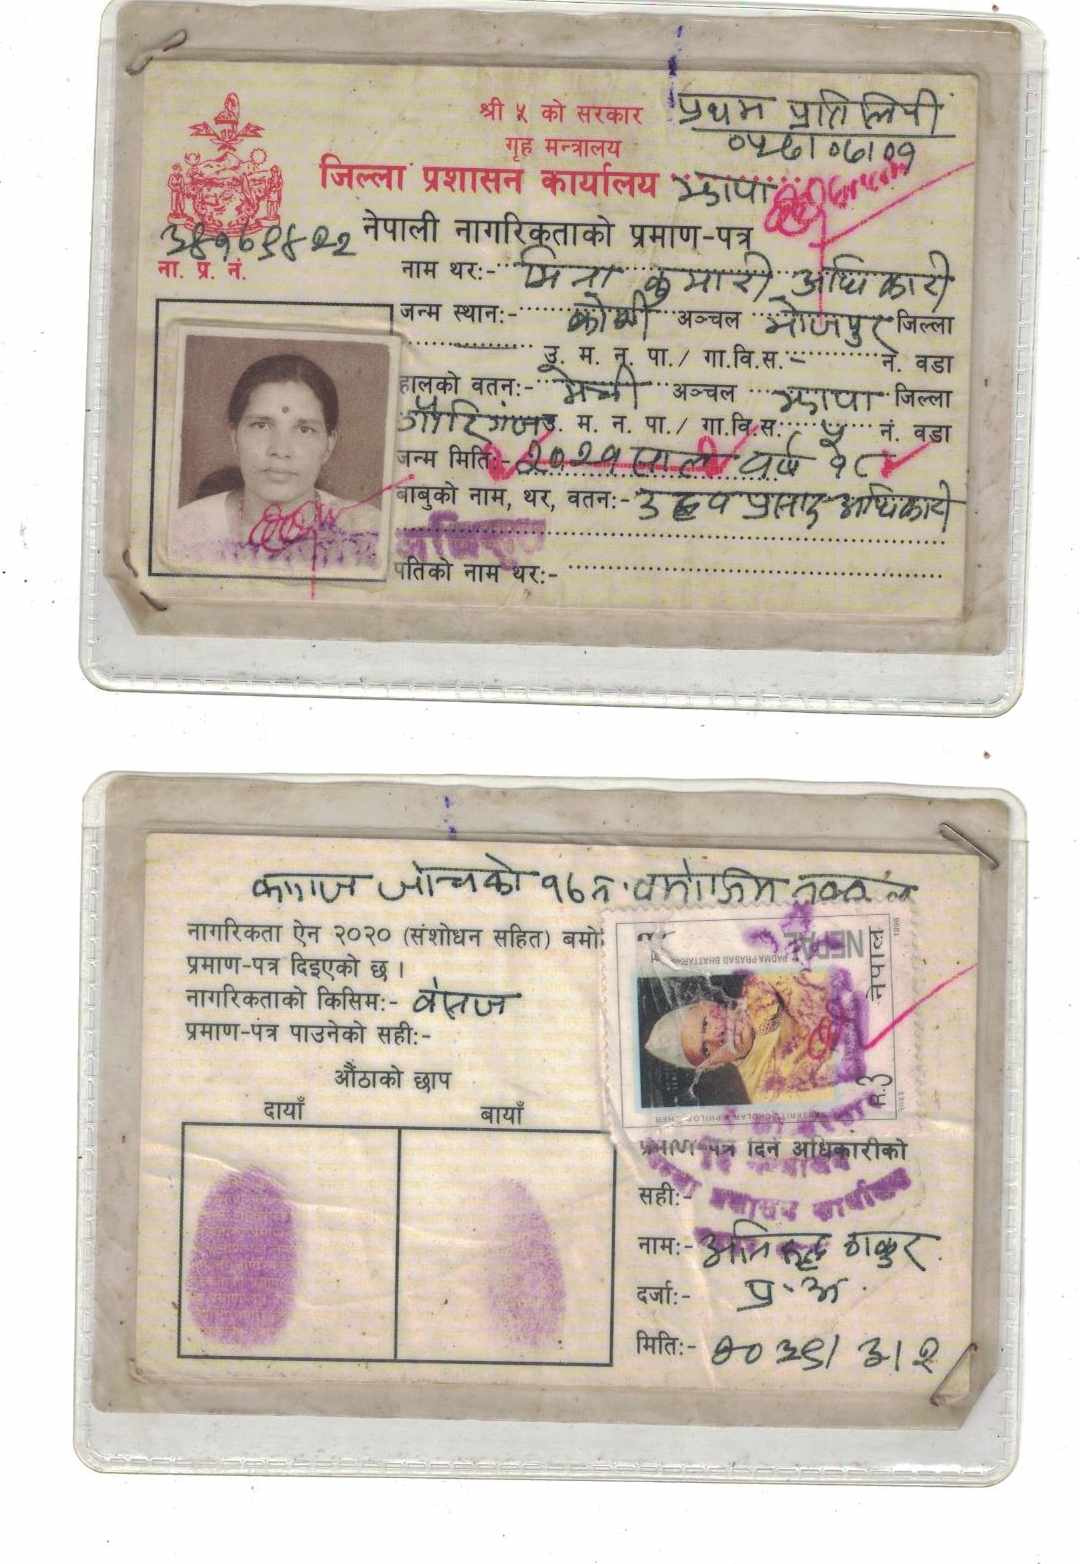 श्री ५ को सरकार
प्रथम प्रतिलिपी
गृह मन्त्रालय
जिल्ला प्रशासन कार्यालय झापा
नेपाली नागरिकताको प्रमाण-पत्र
ना. प्र. नं.
नाम थर:- मिना कुमारी अधिकारी
जन्म स्थान:- कोशी अञ्चल भोजपुर जिल्ला
उ. म. न. पा./ गा.वि.स.- नं. वडा
हालको वतन:- मेची अञ्चल झापा जिल्ला
गौरिगंज उ. म. न. पा./ गा.वि.स. ५ नं. वडा
जन्म मिति:- २०२१ साल वर्ष १८
बाबुको नाम, थर, वतन:- उद्धव प्रसाद अधिकारी
पतिको नाम थर:-
कागज जाँचको बमोजिम नक्कल
नागरिकता ऐन २०२० (संशोधन सहित) बमो
प्रमाण-पत्र दिइएको छ।
नागरिकताको किसिम:- वंसज
प्रमाण-पत्र पाउनेको सही:-
औंठाको छाप
दायाँ बायाँ
NEPAL नेपाल
PADMA PRASAD BHATTARAI
1996
प्रमाण-पत्र दिने अधिकारीको
सही:-
नाम:- अनिरुद्ध ठाकुर
दर्जा:- प्र.अ.
मिति:- २०३९/३/२